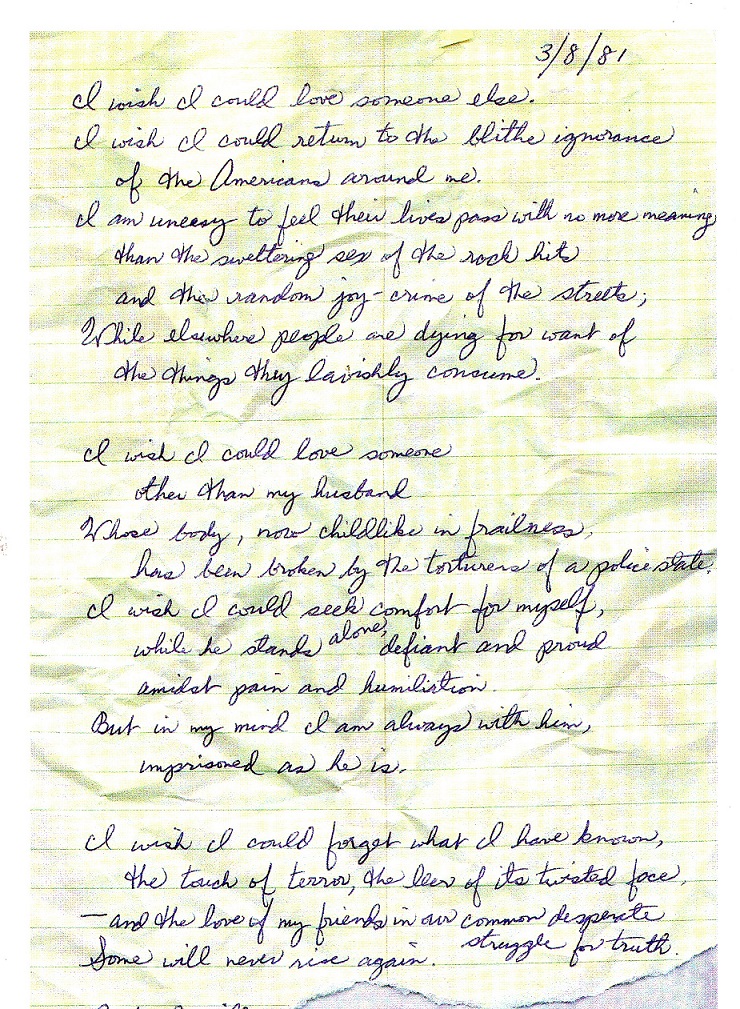 3/8/81
I wish I could love someone else.
I wish I could return to the blithe ignorance
of the Americans around me.
I am uneasy to feel their lives pass with no more meaning
than the sweltering sex of the rock hits
and the random joy-crime of the streets;
While elsewhere people are dying for want of
the things they lavishly consume.
I wish I could love someone
other than my husband
Whose body, now childlike in frailness,
has been broken by the torturers of a police state.
I wish I could seek comfort for myself,
while he stands alone, defiant and proud
amidst pain and humiliation.
But in my mind I am always with him,
imprisoned as he is.
I wish I could forget what I have known,
the touch of terror, the leer of its twisted face,
—and the love of my friends in our common desperate
struggle for truth.
Some will never rise again.